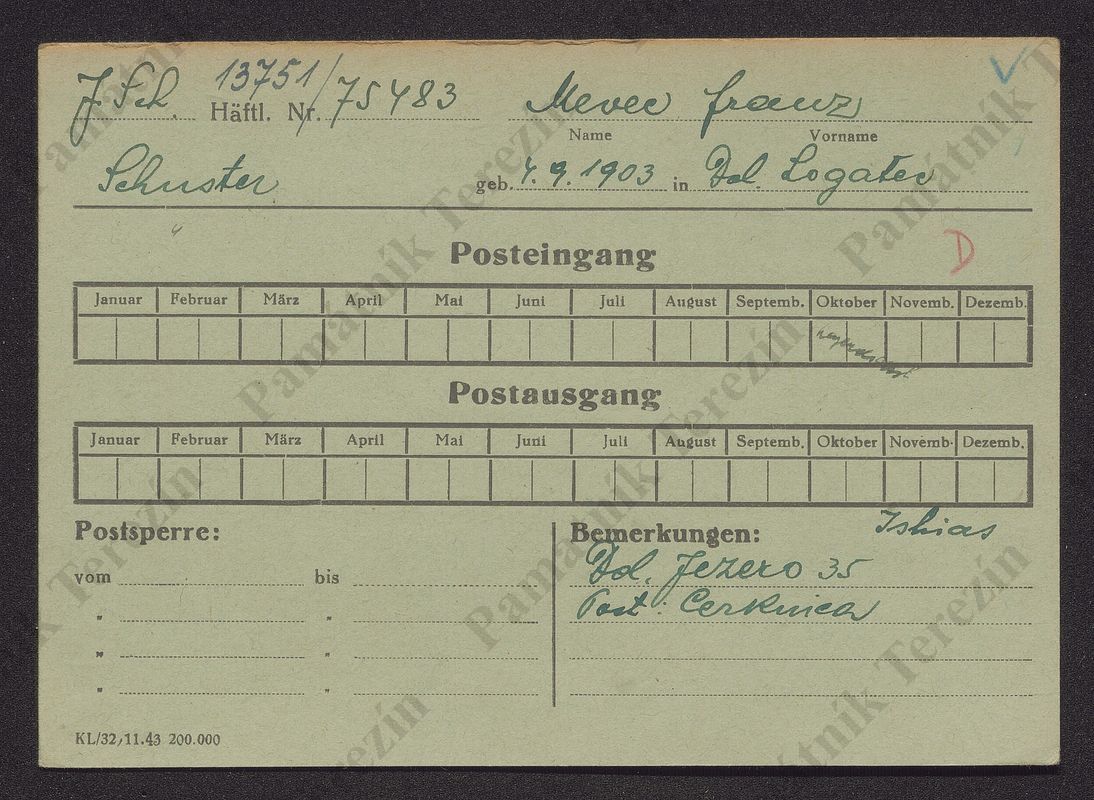 J. Sch. 13751/75483 Mevec Franz V
Häftl. Nr. Name Vorname
Schuster geb. 4. 9. 1903 in Dol. Logatec
Posteingang
D
Januar Februar März April Mai Juni Juli August Septemb. Oktober Novemb. Dezemb.
Postausgang
Januar Februar März April Mai Juni Juli August Septemb. Oktober Novemb. Dezemb.
Postsperre:
vom bis
" "
" "
" "
Bemerkungen: Ishias
Dol. Jezero 35
Post: Cerknica
KL/32, 11.43 200.000
Památník Terezín